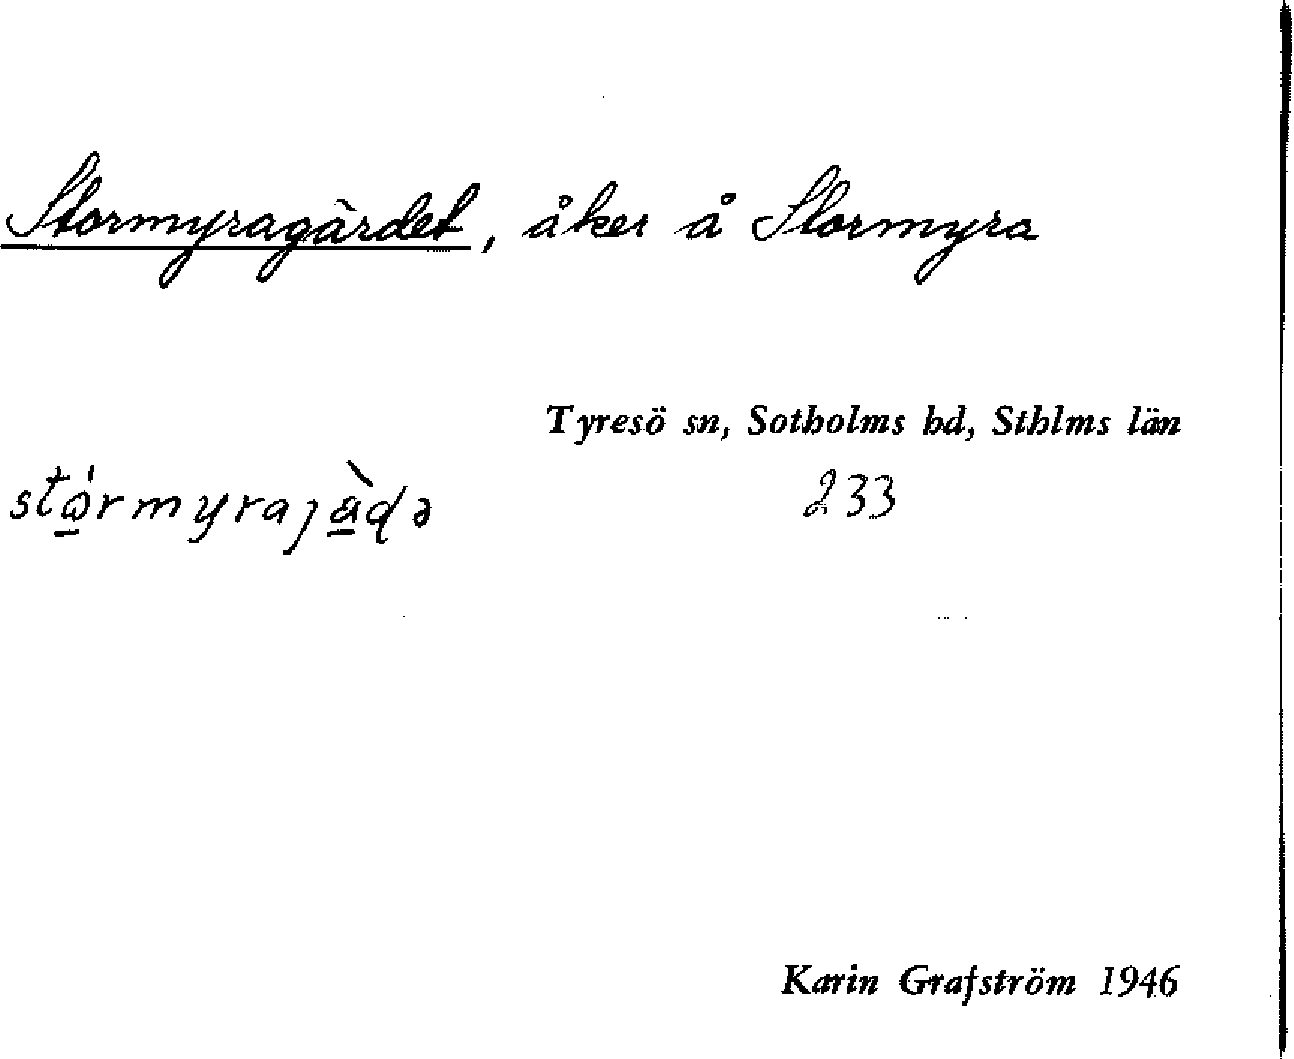 Stormyragärdet, åker å Stormyra
Tyresö sn, Sotholms hd, Sthlms län
stǫ́rmyrajä̀ḍə 233
Karin Grafström 1946